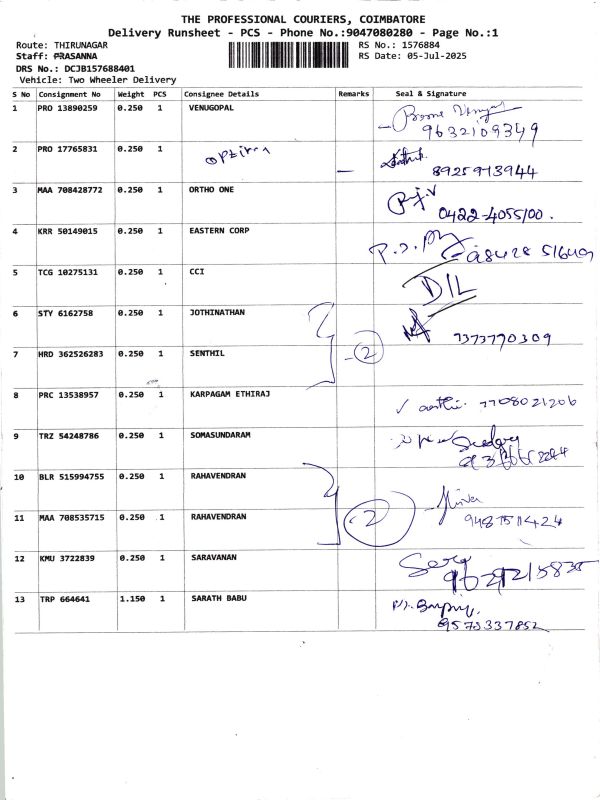 THE PROFESSIONAL COURIERS, COIMBATORE
Delivery Runsheet - PCS - Phone No.:9047080280 - Page No.:1
Route: THIRUNAGAR RS No.: 1576884
Staff: PRASANNA RS Date: 05-Jul-2025
DRS No.: DCJB157688401
Vehicle: Two Wheeler Delivery
S No Consignment No Weight PCS Consignee Details Remarks Seal & Signature
1 PRO 13890259 0.250 1 VENUGOPAL
9632109349
2 PRO 17765831 0.250 1
8925913944
3 MAA 708428772 0.250 1 ORTHO ONE
0422-4055100.
4 KRR 50149015 0.250 1 EASTERN CORP
5 TCG 10275131 0.250 1 CCI
DIL
6 STY 6162758 0.250 1 JOTHINATHAN
7373770309
7 HRD 362526283 0.250 1 SENTHIL -2
8 PRC 13538957 0.250 1 KARPAGAM ETHIRAJ
7708021206
9 TRZ 54248786 0.250 1 SOMASUNDARAM
10 BLR 515994755 0.250 1 RAHAVENDRAN
11 MAA 708535715 0.250 1 RAHAVENDRAN -2
12 KMU 3722839 0.250 1 SARAVANAN
13 TRP 664641 1.150 1 SARATH BABU
9573337852